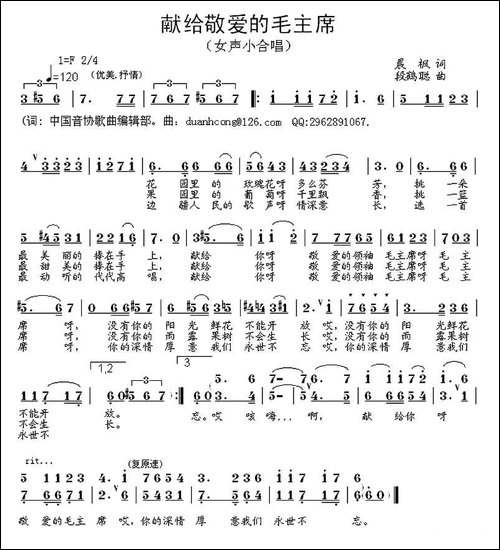 献给敬爱的毛主席
(女声小合唱)
1=F 2/4
♩=120 (优美.抒情)
晨 枫 词
段鹤聪 曲
(词: 中国音协歌曲编辑部。曲: duanhcong@126.com QQ:2962891067.
花 园里的 玫瑰花呀 多么芬 芳, 挑 一朵
果 园里的 葡萄呀 千里飘 香, 挑 一篮
边 疆人 民的 歌 声呀 情深意 长, 选 一首
最 美 丽的 捧在手 上, 献给 你呀 敬 爱的领袖 毛主席呀 毛 主
最 甜 美的 捧在手 上, 献给 你呀 敬 爱的领袖 毛主席呀 毛 主
最 动 听的 代代高 唱, 献给 你呀 敬 爱的领袖 毛主席呀 毛 主
席 呀, 没有你的 阳 光 鲜花 不能开 放 哎, 没有你的 阳 光鲜花
席 呀, 没有你的 雨 露 果树 不会生 长 哎, 没有你的 雨 露果树
席 呀, 你的深情 厚 意 我们 永世不 忘 哎, 你的深情 厚 意我们
1,2
3
不能开 放。 忘。哎 咳 嗨... 啊, 献 给你 呀
不会生 长。
永世不
rit...
(复原速)
敬 爱的毛主 席 哎, 你的深情 厚 意我们 永世不 忘。